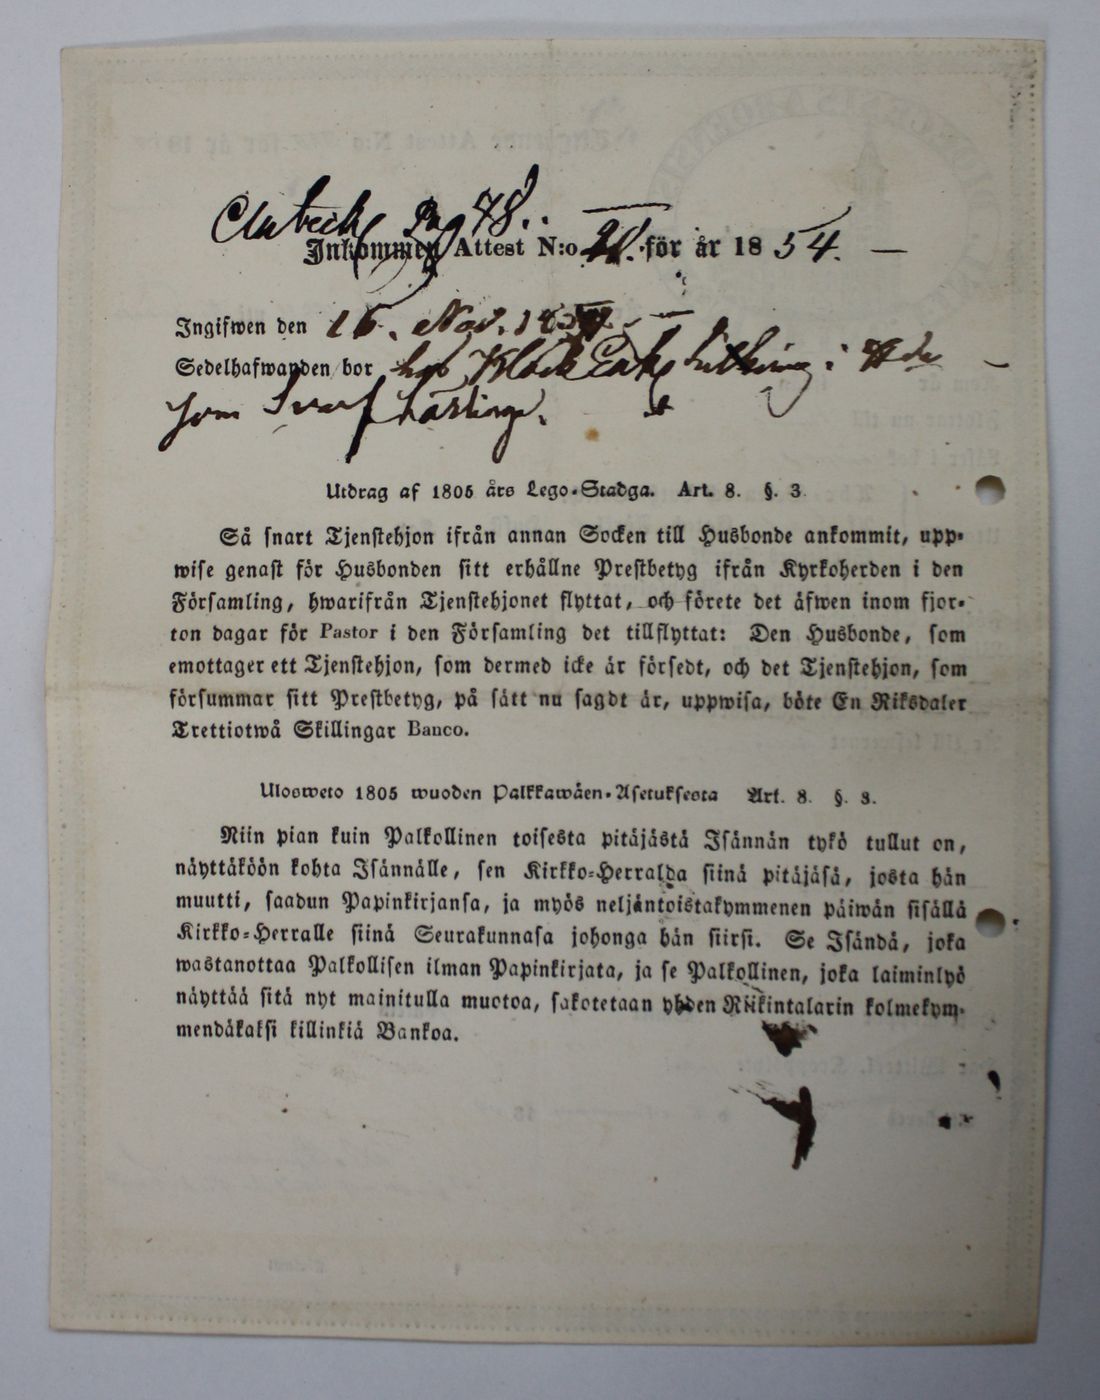 Pag 48.
Inkommen Attest N:o 21. för år 1854.
Ingifwen den 16. Nov. 1854.
Sedelhafwanden bor hos Klock Enk i
som Svarf Lärling.
Utdrag af 1805 års Lego-Stadga. Art. 8. §. 3
Så snart Tjenstehjon ifrån annan Socken till Husbonde ankommit, upp-
wise genast för Husbonden sitt erhållne Prestbetyg ifrån Kyrkoherden i den
Församling, hwarifrån Tjenstehjonet flyttat, och förete det äfwen inom fjor-
ton dagar för Pastor i den Församling det tillflyttat: Den Husbonde, som
emottager ett Tjenstehjon, som dermed icke är försedt, och det Tjenstehjon, som
försummar sitt Prestbetyg, på sätt nu sagdt är, uppwisa, böte En Riksdaler
Trettiotwå Skillingar Banco.
Ulosweto 1805 wuoden Palkkawäen-Asetuksesta Art. 8. §. 3.
Niin pian kuin Palkollinen toisesta pitäjästä Isännän tykö tullut on,
näyttäköön kohta Isännälle, sen Kirkko-Herralda siinä pitäjäsä, josta hän
muutti, saadun Papinkirjansa, ja myös neljäntoistakymmenen päiwän sisällä
Kirkko-Herralle siinä Seurakunnasa johonga hän siirsi. Se Isändä, joka
wastanottaa Palkollisen ilman Papinkirjata, ja se Palkollinen, joka laiminlyö
näyttää sitä nyt mainitulla muotoa, sakotetaan yhden Riikintalarin kolmekym-
mendäkaksi killinkiä Bankoa.